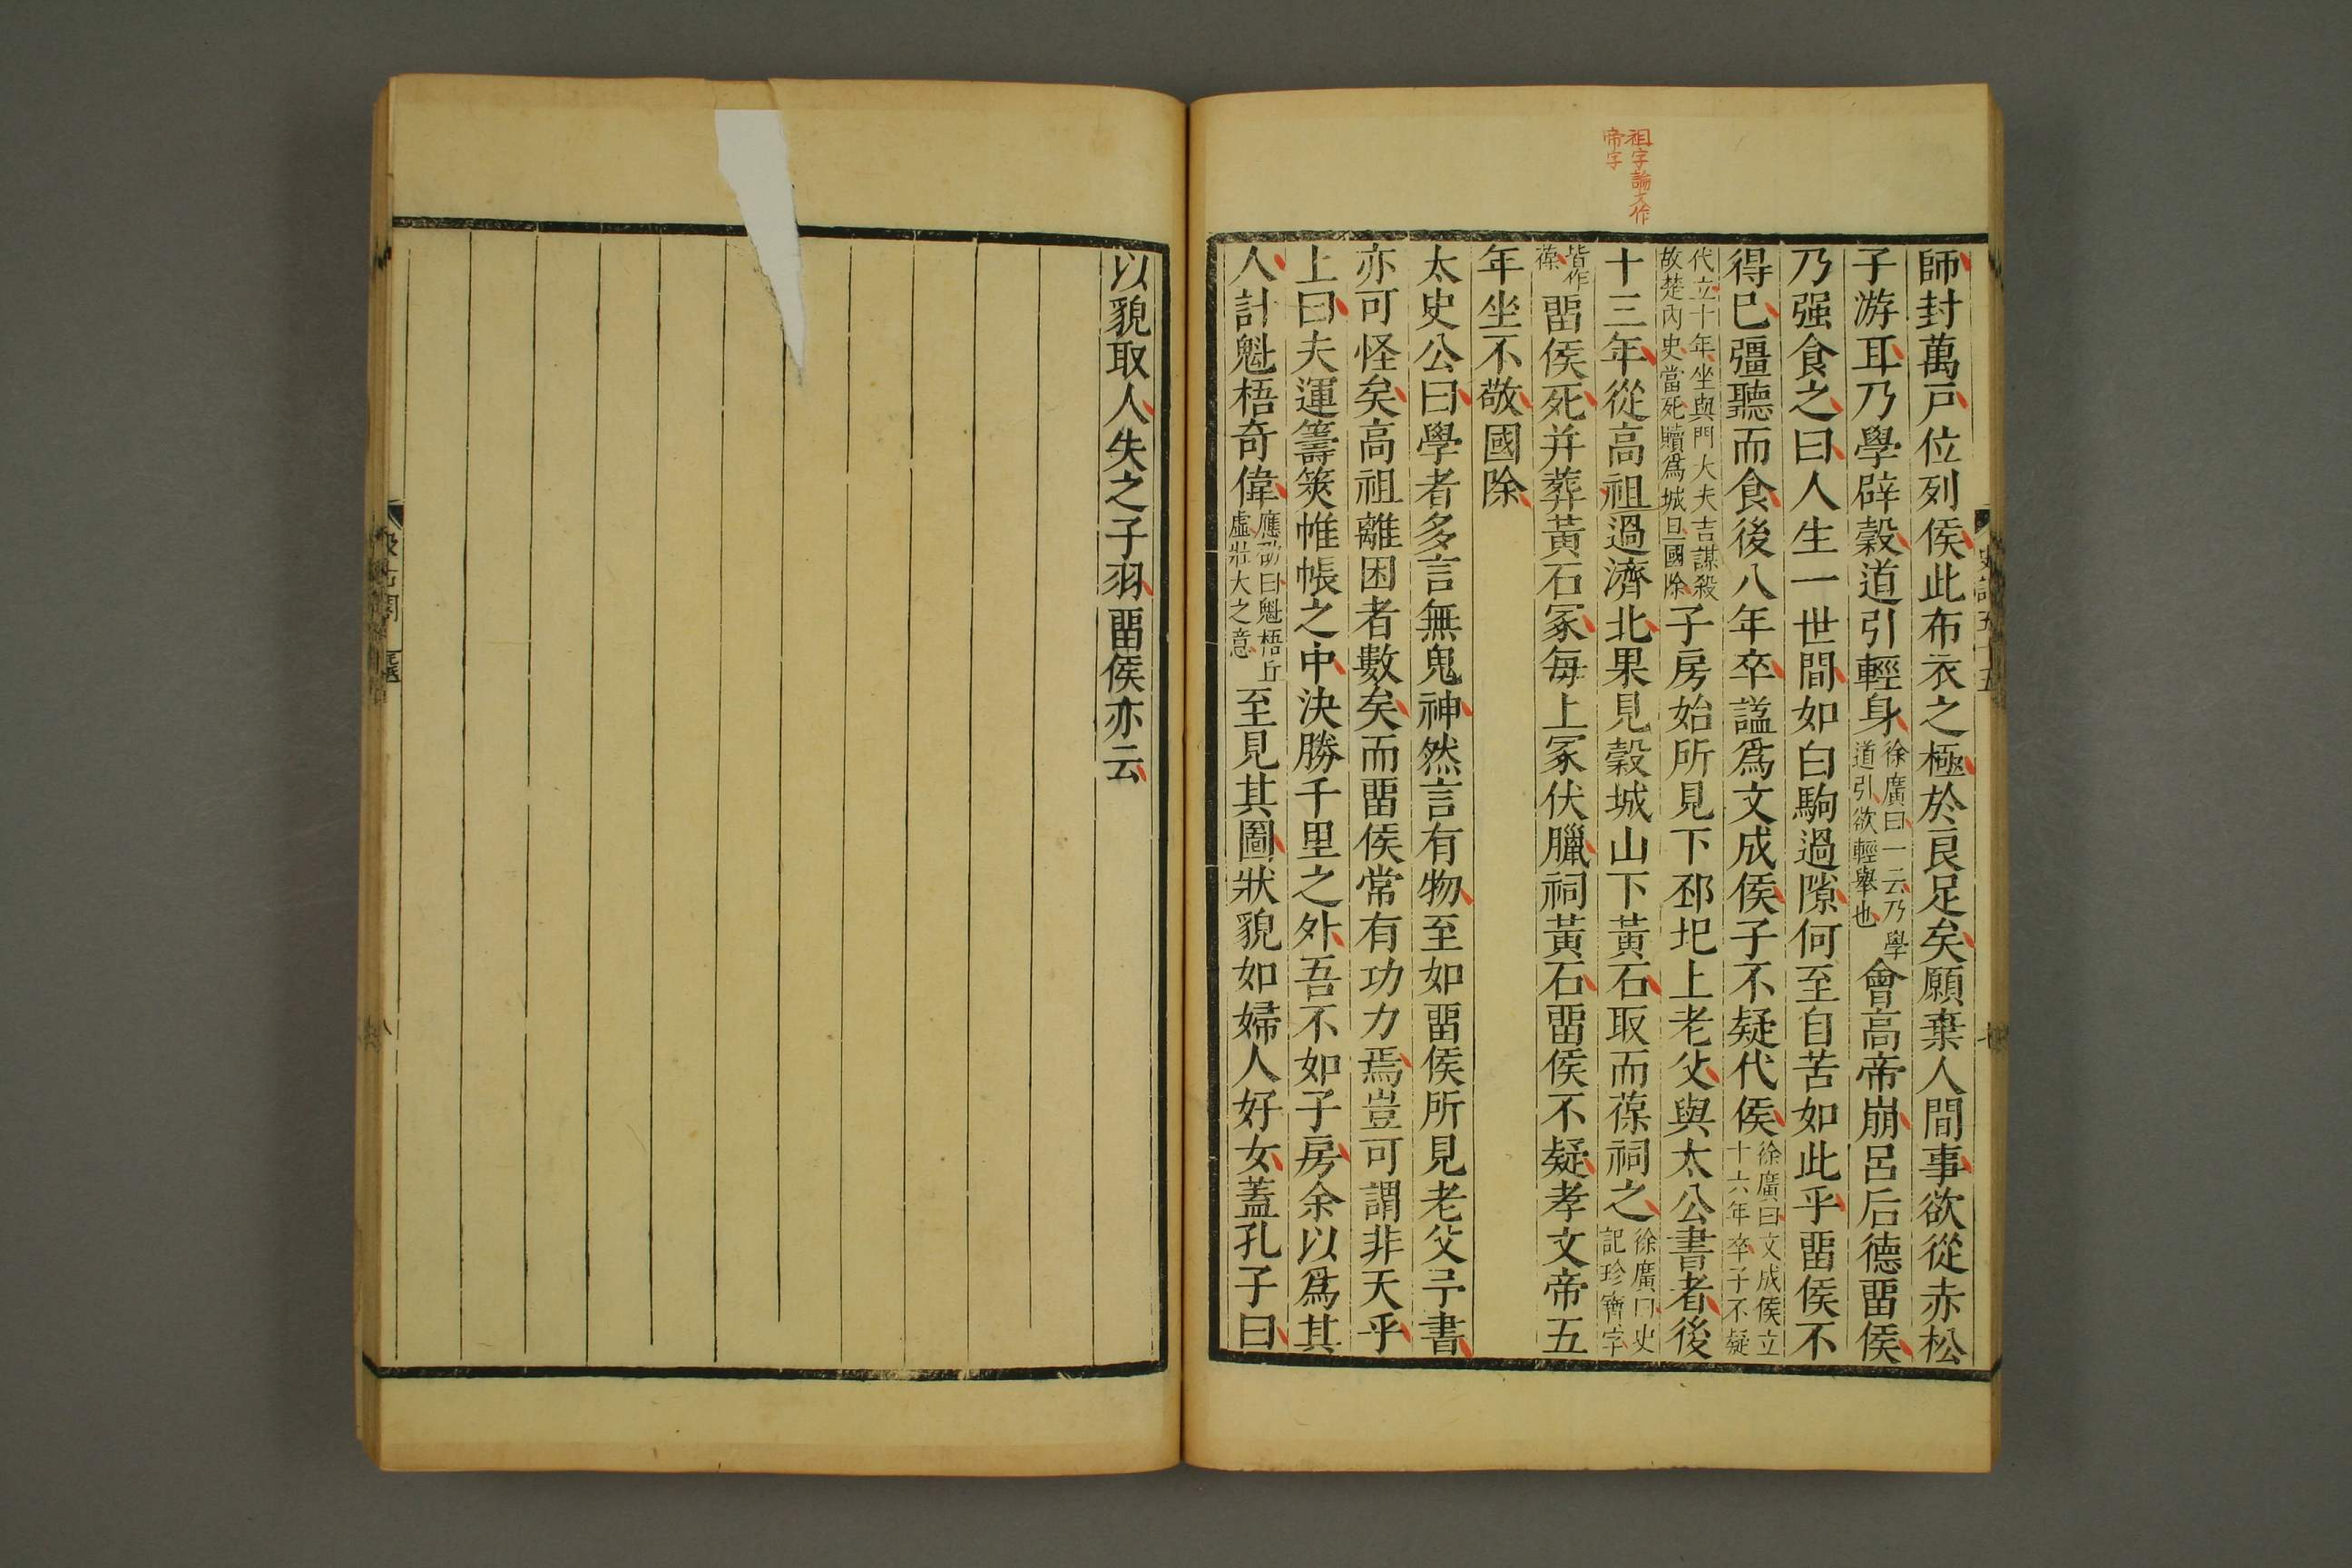 祖字論衡作
帝字
師封萬戸位列侯此布衣之極於良足矣願棄人間事欲從赤松
子游耳乃學辟穀道引輕身徐廣曰一云乃學道引欲輕舉也會高帝崩呂后德畱侯
乃强食之曰人生一世間如白駒過隙何至自苦如此乎畱侯不
得已彊聽而食後八年卒諡爲文成侯子不疑代侯徐廣曰文成侯立十六年卒子不疑
代立十年坐與門大夫吉謀殺故楚內史當死贖爲城旦國除子房始所見下邳圯上老父與太公書者後
十三年從高祖過濟北果見穀城山下黃石取而葆祠之徐廣曰史記珍寶字
皆作葆畱侯死并葬黃石冢每上冢伏臘祠黃石畱侯不疑孝文帝五
年坐不敬國除
太史公曰學者多言無鬼神然言有物至如畱侯所見老父予書
亦可怪矣高祖離困者數矣而畱侯常有功力焉豈可謂非天乎
上曰夫運籌筴帷帳之中決勝千里之外吾不如子房余以爲其
人計魁梧奇偉應劭曰魁梧丘虛壯大之意至見其圖狀貌如婦人好女蓋孔子曰
史記五十五
以貌取人失之子羽畱侯亦云
八